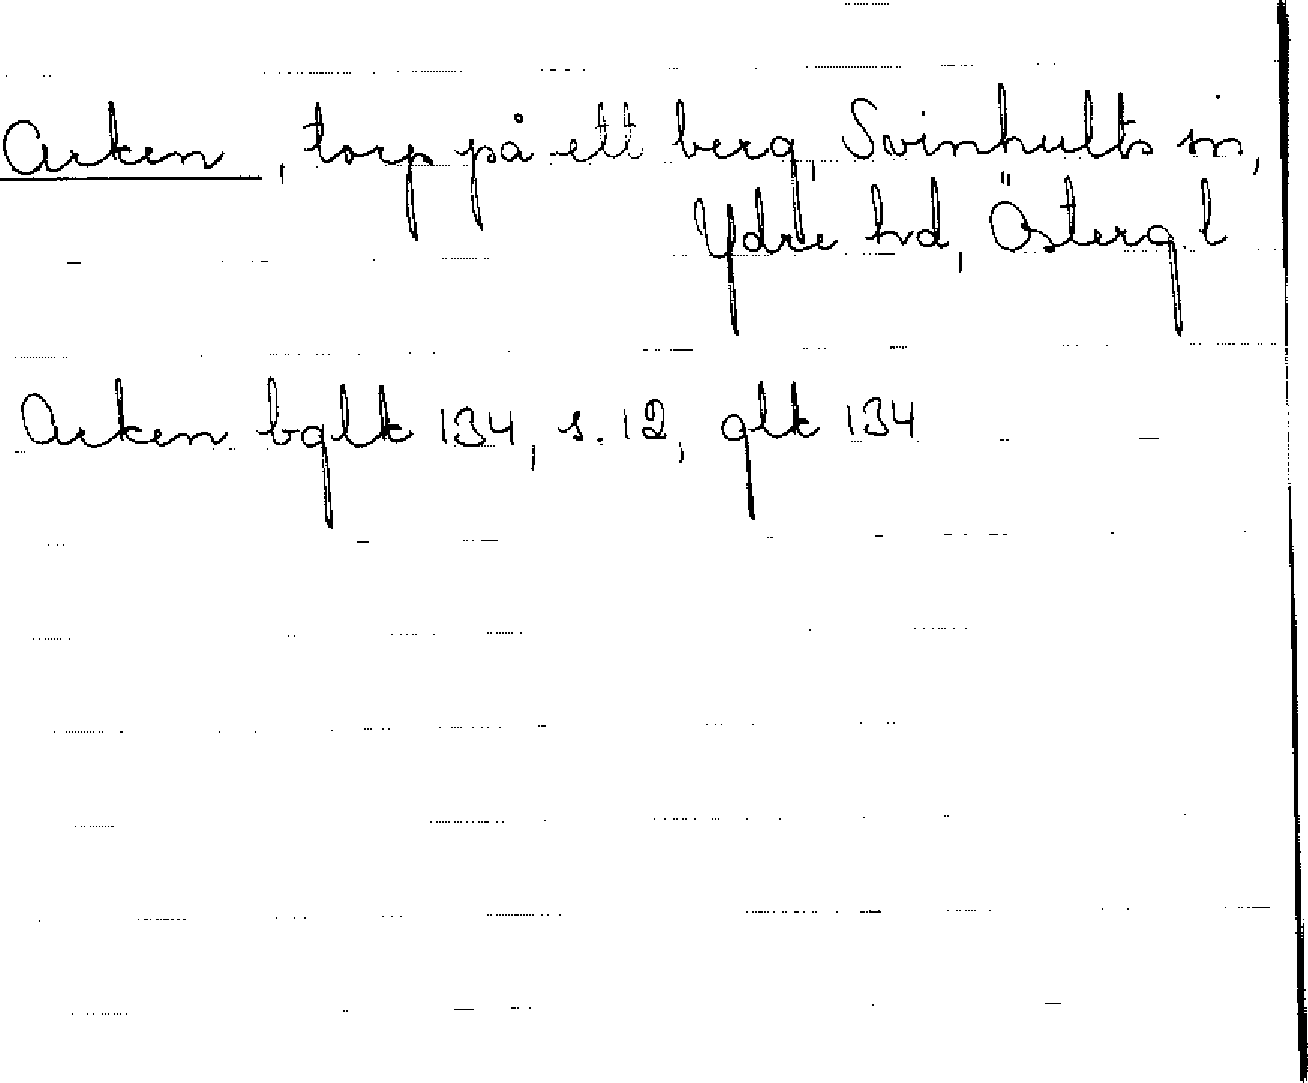 Arken, torp på ett berg, Svinhults sn,
Ydre hd, Östergl
Arken bglk 134, s. 12, glk 134